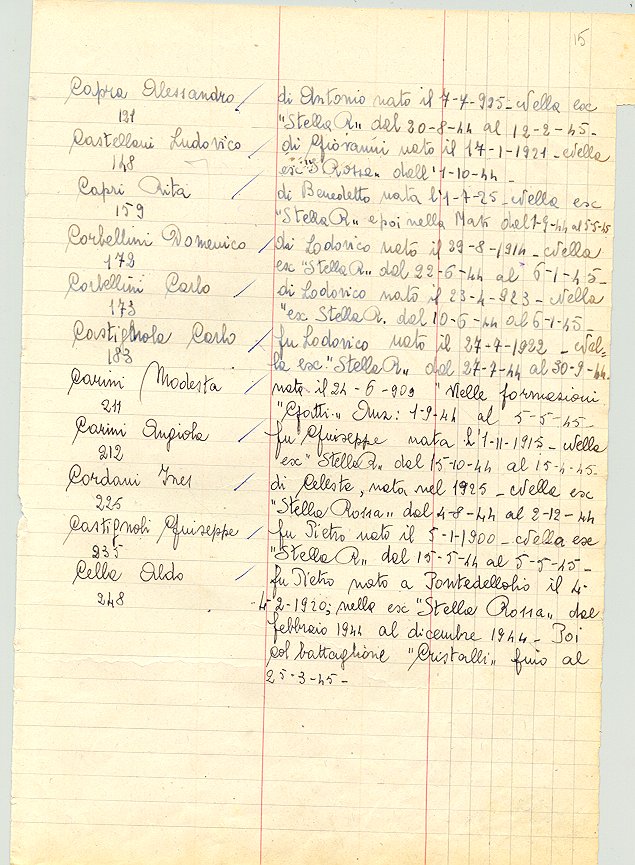 15
Capra Alessandro / di Antonio nato il 7-7-925 - Nella ex
121 "Stella R" dal 20-8-44 al 12-2-45 -
Castellani Ludovico / di Giovanni nato il 17-1-1921 - Nella
148 ex S Rossa" dall'1-10-44 -
Capri Rita / di Benedetto nata l'1-7-25 - Nella ex
159 "Stella R" e poi nella dal 1-9-44 al 5-5-45
Corbellini Domenico / di Lodovico nato il 29-8-1914 - Nella
172 ex "Stella R" dal 22-6-44 al 6-1-45 -
Corbellini Carlo / di Lodovico nato il 23-4-923 - Nella
173 "ex Stella R. dal 10-6-44 al 6-1-45
Castignola Carlo / fu Lodovico nato il 27-7-1922 - Nel-
183 la ex "Stella R" dal 27-7-44 al 30-9-44
Carini Modesta / nata il 24-6-909 "Nelle formazioni
211 "Gatti" Anz: 1-9-44 al 5-5-45 -
Carini Angiola / fu Giuseppe nata l'1-11-1915 - Nella
212 ex "Stella R" dal 15-10-44 al 15-4-45 -
Cordani Ines / di Celeste, nata nel 1925 - Nella ex
225 "Stella Rossa" dal 4-8-44 al 2-12-44
Castignoli Giuseppe / fu Pietro nato il 5-1-1900 - Nella ex
235 "Stella R" dal 15-5-44 al 5-5-45 -
Cella Aldo / fu Pietro nato a Pontedellolio il 4-
248 -4-2-1920; nella ex "Stella Rossa" dal
febbraio 1944 al dicembre 1944 - Poi
col battaglione "Cristalli" fino al
25-3-45 -